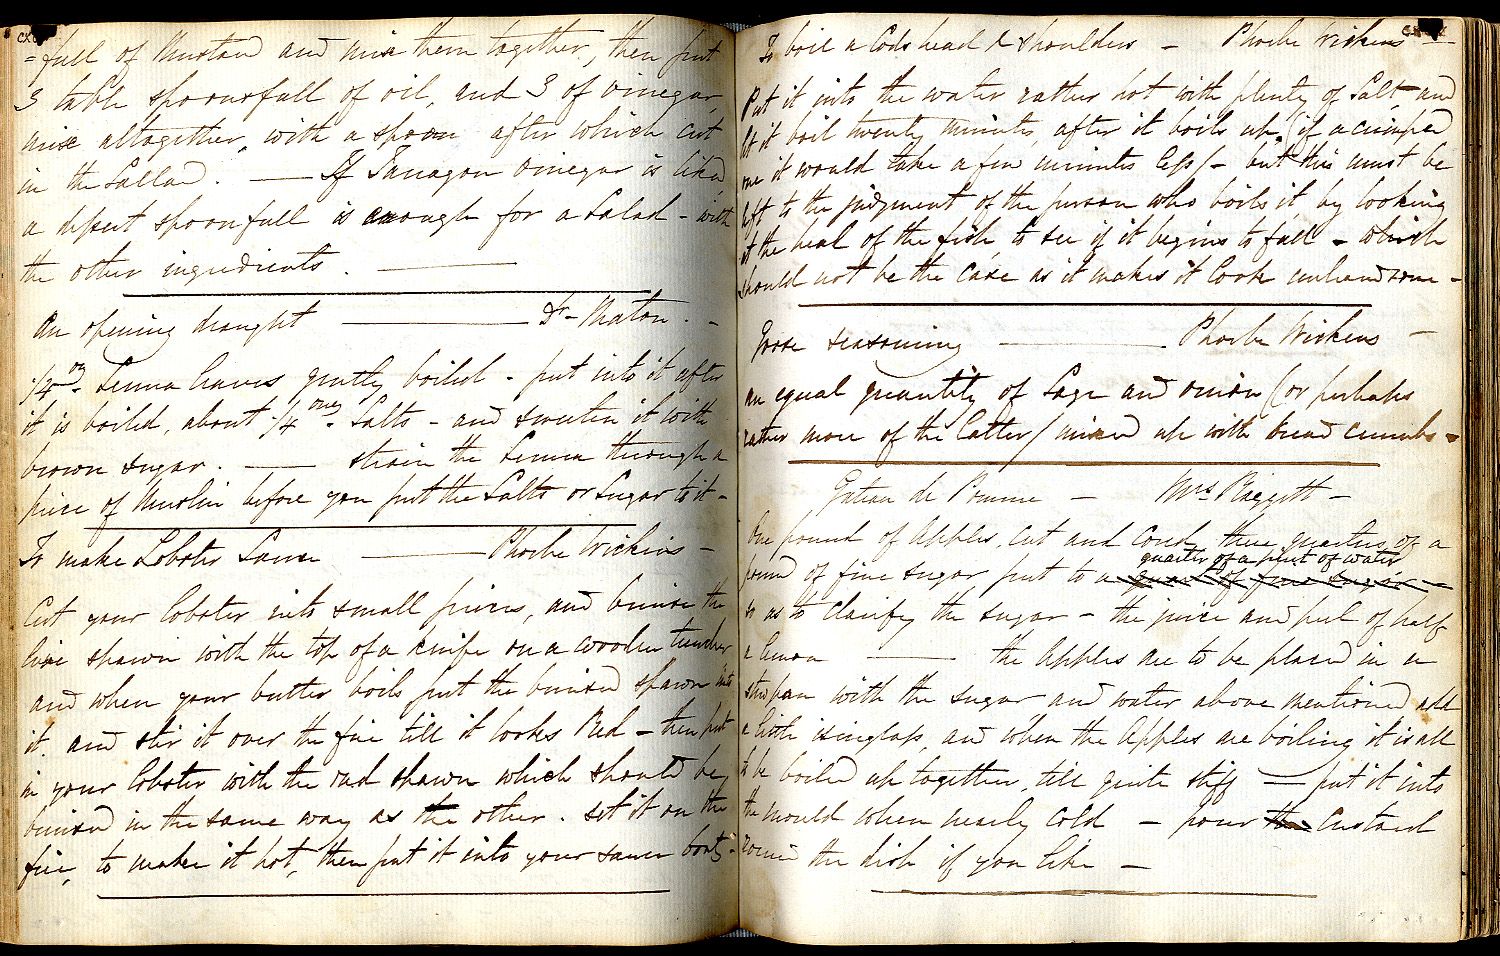 =full of Mustard and mix them together, then put
3 table spoonsfull of oil, and 3 of vinegar,
mix altogether, with a spoon after which cut
in the Sallad. — If Tarragon vinegar is liked
a desert spoonfull is enough for a Salad - with
the other ingredients. —
An opening draught — Dr Maton. -
1/4 oz Senna leaves gently boiled - put into it after
it is boiled, about 1/4 onz Salts - and sweeten it with
brown sugar. — strain the Senna through a
piece of Muslin before you put the Salts or Sugar to it -
To make Lobster Sauce — Phoebe Wickens -
Cut your lobster into small pieces, and bruise the
live spawn with the top of a knife on a wooden trencher
and when your butter boils put the bruised spawn into
it. and stir it over the fire till it looks Red - then put
in your lobster with the red spawn which should be
bruised in the same way as the other. set it on the
fire, to make it hot, then put it into your sauce boat -
To boil a Cods head & shoulders - Phoebe Wickens -
Put it into the water rather hot with plenty of Salt, and
let it boil twenty minutes, after it boils up, (if a crimped
one it would take a few minutes less/- but this must be
left to the judgment of the person who boils it, by looking
at the head of the fish to see if it begins to fall - which
should not be the case as it makes it look unhandsome -
Goose seasoning — Phoebe Wickens -
an equal quantity of Sage and onion (or perhaps
rather more of the latter/ mixed up with bread crumbs -
Gateau de Pomme - Mrs Baggott -
One pound of Apples, cut and cored, three quarters of a
quarter of a pint of water
pound of fine sugar put to a quart of fine sugar -
so as to clarify the sugar - the juice and peel of half
a lemon — the Apples are to be placed in a
stewpan with the sugar and water above mentioned add
a little isinglass, and when the Apples are boiling it is all
to be boiled up together, till quite stiff — put it into
the mould when nearly cold - pour the custard
round the dish if you like -